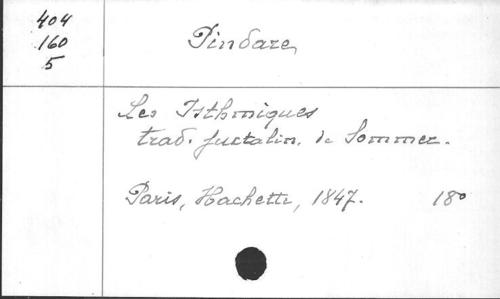 404
160
5
Pindare
Les Isthmiques
trad. juxtalin. de Sommer.
Paris, Hachette, 1847. 18°